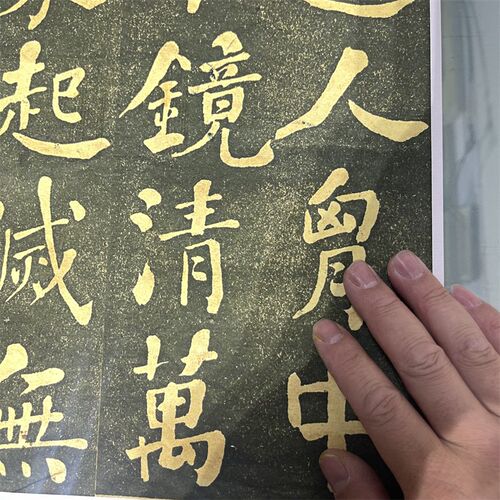 人胷中
鏡清萬
起滅無